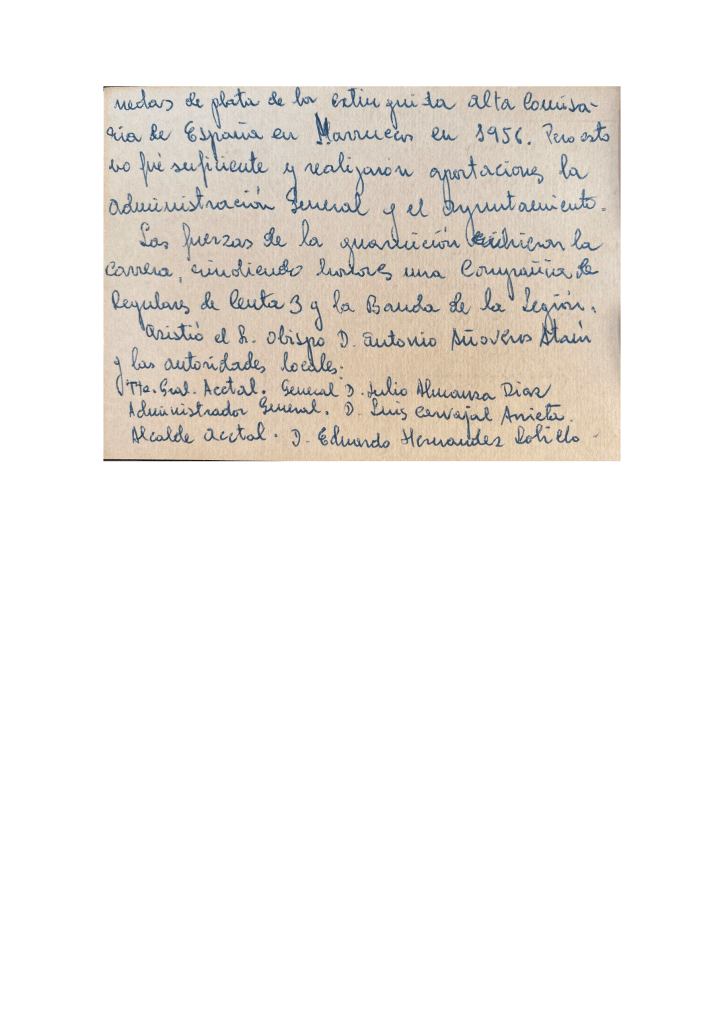 nedas de plata de la extinguida alta Comisa-
ria de España en Marruecos en 1956. Pero esto
no fué suficiente y realizaron aportaciones la
administración General y el ayuntamiento.
Las fuerzas de la guarnición cubrieron la
carrera, rindiendo honores una Compañia de
Regulares de Ceuta 3 y la Banda de la Legión.
Asistió el S. Obispo D. Antonio Añoveros Ataún
y las autoridades locales:
Tte. Gral. Acctal. General D. Julio Almansa Diaz
Administrador General. D. Luis Carvajal Arrieta.
Alcalde acctal. D. Eduardo Hernandez Lobillo